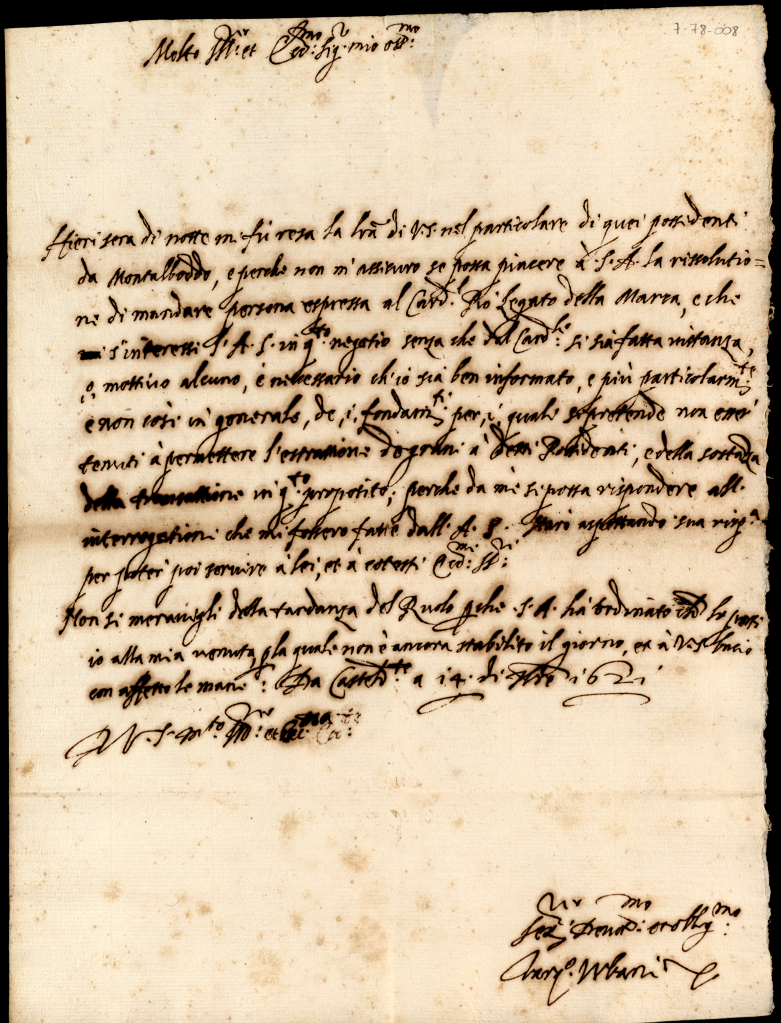 7-78-008
Molto Ill.re et Ecc.mo Sig.r mio oss.mo
Hieri sera di notte mi fù resa la lra di V.S. nel particolare di quei possidenti
da Montalboddo, e perche non m'assicuro se possa piacere à S.A. la rissolutio=
ne di mandare persona espressa al Card.l Pio Legato della Marca, e che
s'interessi S.A.S. in q.to negotio senza che dal Card.le si sia fatta instanza,
ò mottivo alcuno, è necessario ch'io sia ben informato, e più particolarm.te
e non così in generale, de i fondam.ti per i quali si pretende non esser
tenuti à permettere l'estrattione de grani à detti Possidenti, e della sostanza
della transattione in q.to proposito; perche da me si possa rispondere all'
interrogationi che mi fossero fatte dall'A.S. Starò aspettando sua risp.a
per poter poi servire à lei, et à cotesti Ecc.mi SS.ri
Non si meravigli della tardanza del Ruolo perche S.A. hà ordinato che lo porti
io alla mia venuta per la quale non è ancora stabilito il giorno, et à V.S. bacio
con affetto le mani. Da Casteld.te a 14 di 1621
D V.S. m.to Ill.re et Ecc.ma
Ser.re Devot.mo et obblig.mo